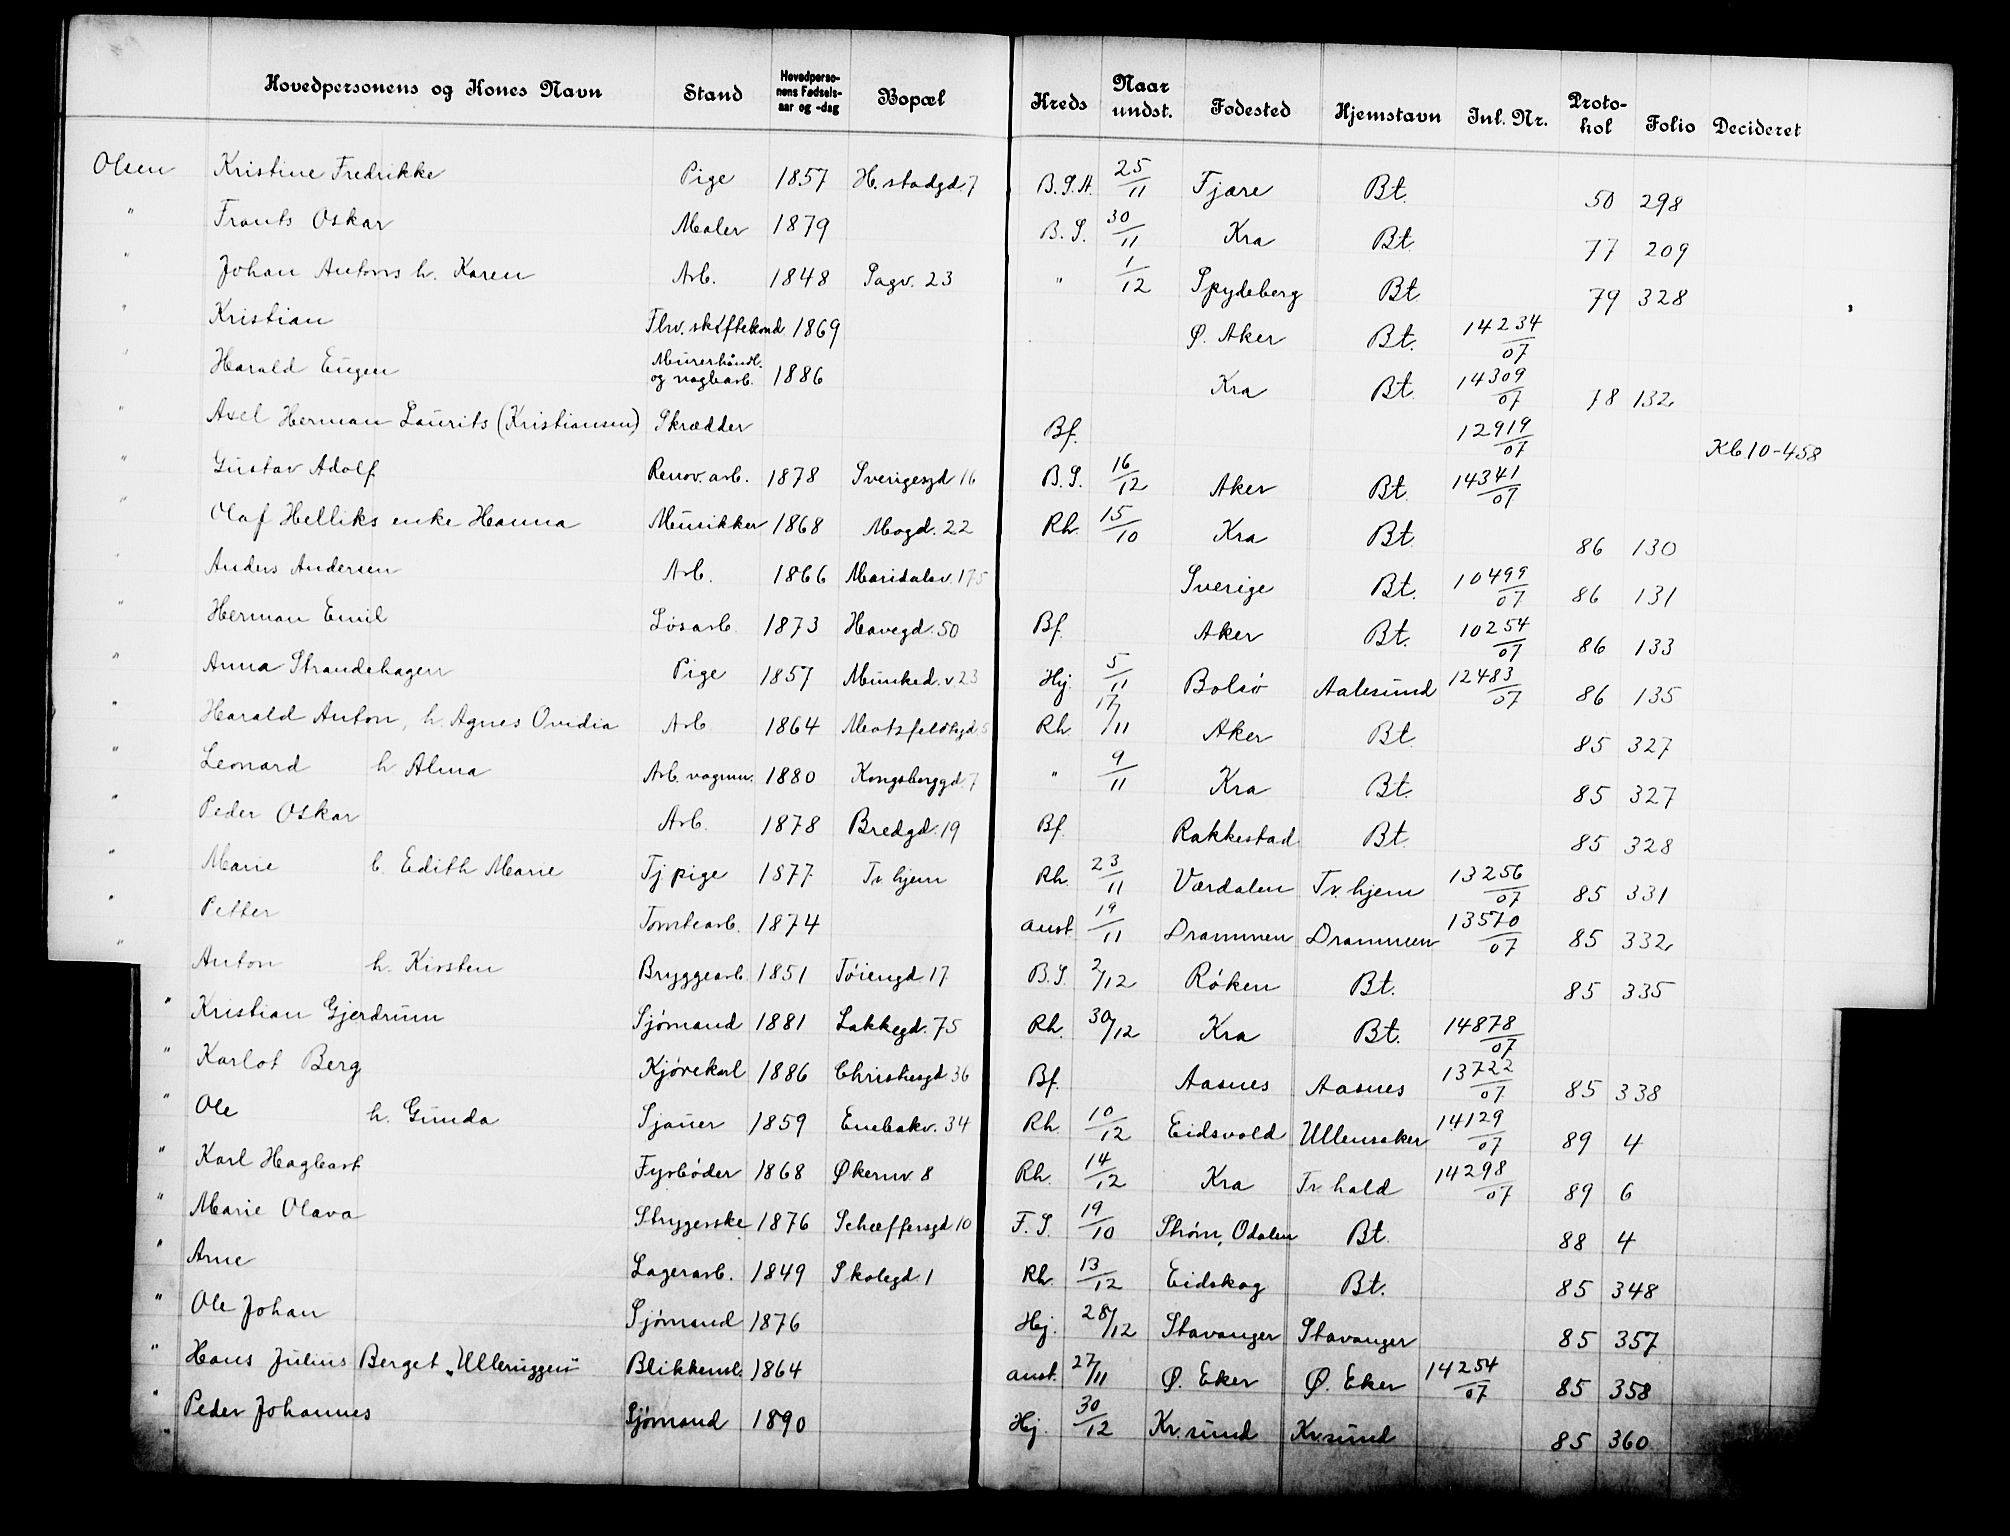 Hovedpersonens og Kones Navn Stand Hovedperso-nens Fødsels-aar og -dag Bopæl Kreds Naar undst. Fødested Hjemstavn Inl. Nr. Proto-kol Folio Decideret
Olsen Kristine Fredrikke Pige 1857 H.stadgd. 7 B.S.A. 25/11 Fjære Bt. 50 298
" Frants Oskar Maler 1879 B.S. 30/11 Kra Bt. 77 209
" Johan Antons h. Karen Arb. 1848 Sagv. 23 " 1/12 Spydeberg Bt 79 328
" Kristian Fhv. skiftekond 1869 Ø. Aker Bt. 14234/07
" Harald Eugen Murerhåndl. og nagbearb. 1886 Kra Bt. 14309/07 78 132
" Axel Herman Laurits (Kristiansen) Skrædder Bf. 12919/07 Kb 10-458
" Gustav Adolf Renov. arb. 1878 Sverigesgd 16 B.S. 16/12 Aker Bt. 14341/07
" Olaf Helliks enke Hanna Musikker 1868 Mogd. 22 Rh. 15/10 Kra Bt. 86 130
" Anders Andersen Arb. 1866 Maridalsv. 175 Sverige Bt. 10499/07 86 131
" Herman Emil Løsarb. 1873 Havegd. 50 Bf. Aker Bt. 10254/07 86 133
" Anna Strandehagen Pige 1857 Munked. v 23 Hj. 5/11 Bolsø Aalesund 12483/07 86 135
" Harald Anton, h. Agnes Ovidia Arb 1864 Motzfeldtsgd 5 Rh 17/11 Aker Bt. 85 327
" Leonard h Alma Arb. vognm. 1880 Kongsberggd. 7 " 9/11 Kra Bt. 85 327
" Peder Oskar Arb. 1878 Bredgd. 19 Bf. Rakkestad Bt. 85 328
" Marie b. Edith Marie Tj pige 1877 Tv. hjem Rh. 23/11 Værdalen Tv. hjem 13256/07 85 331
" Petter Tomtearb. 1874 anst. 19/11 Drammen Drammen 13570/07 85 332
" Anton h. Kirsten Bryggearb. 1851 Tøiengd. 17 B.S. 2/12 Røken Bt. 85 335
" Kristian Gjerdrum Sjømand 1881 Lakkegd. 75 Rh. 30/12 Kra Bt. 14878/07
" Karlot Berg Kjørekarl 1886 Christiesgd 36 Bf. Aasnes Aasnes 13722/07 85 338
" Ole h. Gunda Sjauer 1859 Enebakv. 34 Rh. 10/12 Eidsvold Ullensaker 14129/07 89 4
" Karl Hagbart Fyrbøder 1868 Økernv 8 Rh. 14/12 Kra Tv. hald 14298/07 89 6
" Marie Olava Strygerske 1876 Schæffersgd 10 F.S. 19/10 Strøm, Odalen Bt. 88 4
" Arne Lagerarb. 1849 Skolegd. 1 Rh. 13/12 Eidskog Bt. 85 348
" Ole Johan Sjømand 1876 Hj. 28/12 Stavanger Stavanger 85 357
" Hans Julius Berget "Ulleruggen" Blikkensl. 1864 anst. 27/11 Ø. Eker Ø. Eker 14254/07 85 358
" Peder Johannes Sjømand 1890 Hj. 30/12 Kr.sund Kr.sund 85 360
"